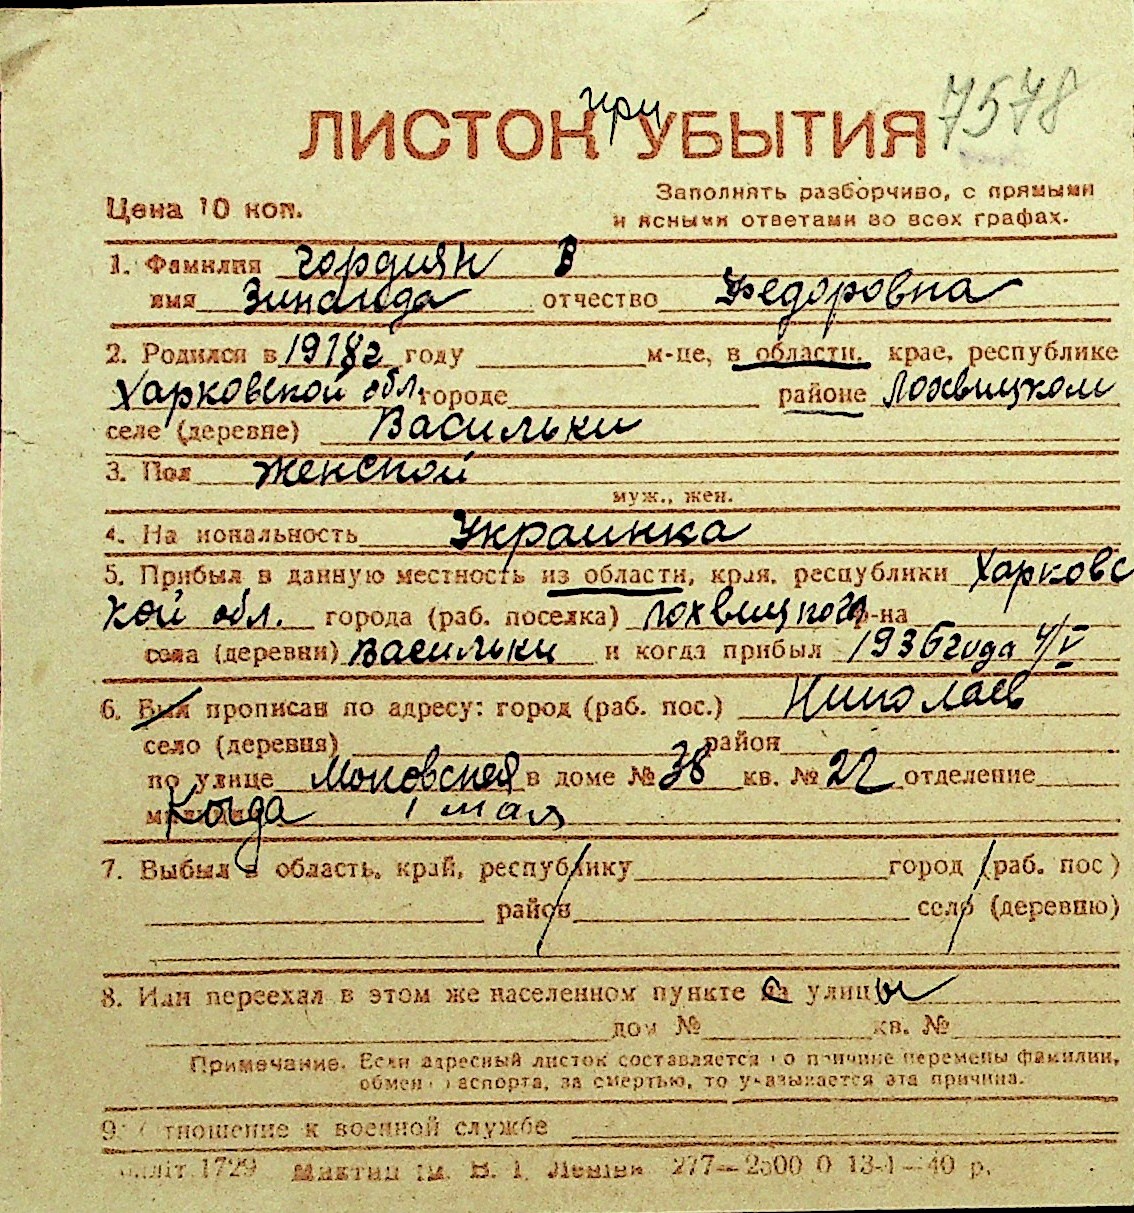 при 7578
ЛИСТОК УБЫТИЯ
Цена 10 коп.
Заполнять разборчиво, с прямыми
и ясными ответами во всех графах.
1. Фамилия Гордиян
имя Зинаида отчество Федоровна
2. Родился в 1918г году м-це, в области, крае, республике
Харковской обл. городе районе Лохвицком
селе (деревне) Васильки
3. Пол женской
муж., жен.
4. Национальность Украинка
5. Прибыл в данную местность из области, края, республики Харковс
кой обл. города (раб. поселка) Лохвицкого р-на
села (деревни) Васильки и когда прибыл 1936 года 4/V
6. Был прописан по адресу: город (раб. пос.) Николаев
село (деревня) район
по улице Моповская в доме № 38 кв. № 22 отделение
Когда 1 мая
7. Выбыл в область, край, республику город (раб. пос)
район село (деревню)
8. Или переехал в этом же населенном пункте с улицы
дом № кв. №
Примечание. Если адресный листок составляется по причине перемены фамилии,
обмен паспорта, за смертью, то указывается эта причина.
9. Отношение к военной службе
1729 ім. В. І. Леніна 277—2500 0 13-1—40 р.